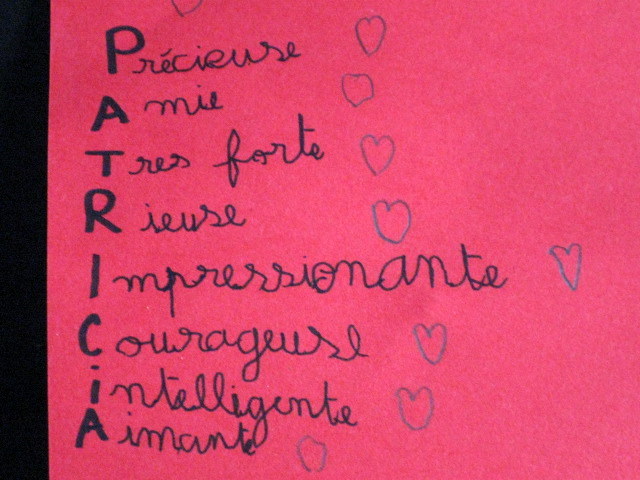 Précieuse
Amie
Tres forte
Rieuse
Impressionante
Courageuse
intelligente
Aimante